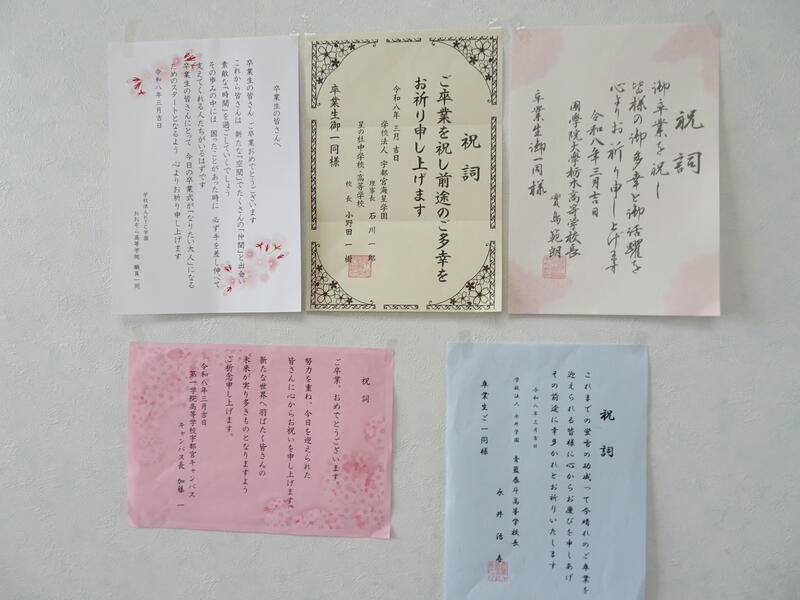 祝詞
御卒業を祝し
皆様の御多幸と御活躍を
心よりお祈り申し上げます
令和八年三月吉日
國學院大學栃木高等学校長
卒業生御一同様
祝詞
ご卒業を祝し前途のご多幸を
お祈り申し上げます
令和八年三月吉日
学校法人 宇都宮海星学園
理事長 石川一郎
星の杜中学校・高等学校
校長 小野田一樹
卒業生御一同様
卒業生の皆さんへ
卒業生の皆さん、ご卒業おめでとうございます
これから皆さんは 新たな「空間」でたくさんの「仲間」と出会い
素敵な「時間」を過ごしていくでしょう
その歩みの中には 困ったことがあった時に 必ず手を差し伸べて
支えてくれる人たちがいるはずです
卒業生の皆さんにとって 今日の卒業式が「なりたい大人」になる
ためのスタートとなるよう 心よりお祈り申し上げます
令和八年三月吉日
おおぞら高等学院 職員一同
祝詞
これまでの蛍雪の功成って今晴れのご卒業を
迎えられる皆様に心からお慶びを申しあげ
その前途に幸多かれとお祈りいたします
令和八年三月吉日
学校法人 永井学園
青藍泰斗高等学校長
永井
卒業生ご一同様
祝詞
ご卒業、おめでとうございます。
努力を重ね、今日を迎えられた
皆さんに心からお祝いを申し上げます。
新たな世界へ羽ばたく皆さんの
未来が実り多きものとなりますよう
ご祈念申し上げます。
令和八年三月吉日
第一学院高等学校宇都宮キャンパス
キャンパス長 加藤 一